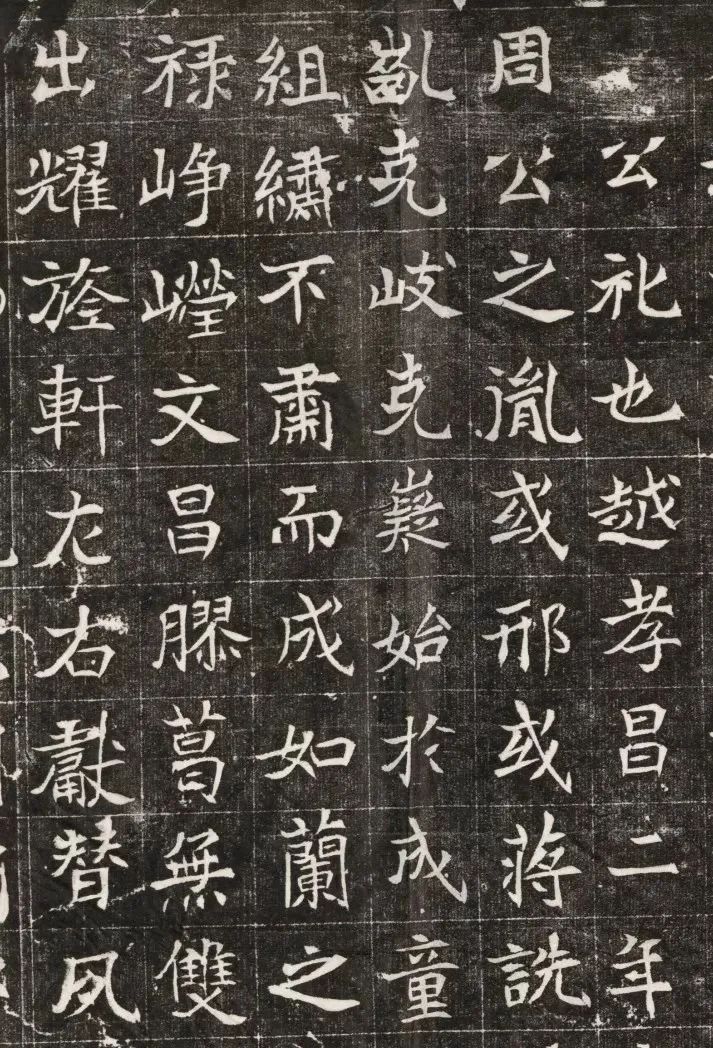 公礼也越孝昌二年
周公之胤或邢或蒋詵
齓克岐克嶷始於成童
組繡不肅而成如蘭之
禄崢嶸文昌膠葛無雙
出耀旌軒左右獻替夙